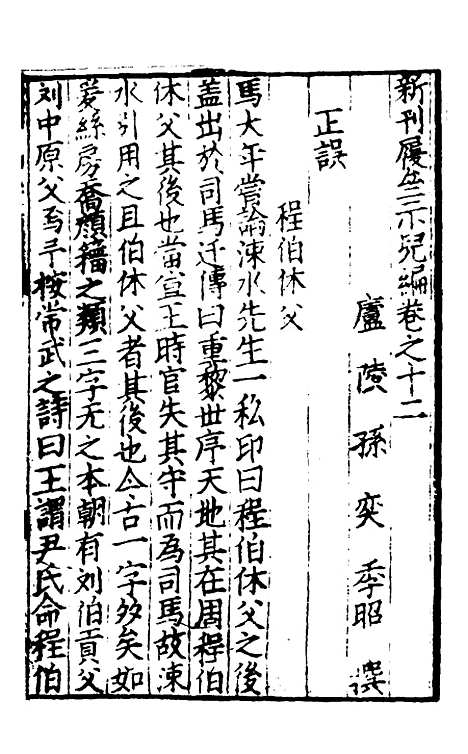 新刊履齋示兒編卷之十二
廬陵孫奕季昭撰
正誤
程伯休父
馬大年嘗論涑水先生一私印曰程伯休父之後
盖出於司馬迁傳曰重黎世序天地其在周程伯
休父其後也當宣王時官失其守而為司馬故涑
水引用之且伯休父者其後也今古一字多矣如
爰絲房喬顔籀之類三字无之本朝有刘伯貢父
刘中原父焉予按常武之詩曰王謂尹氏命程伯